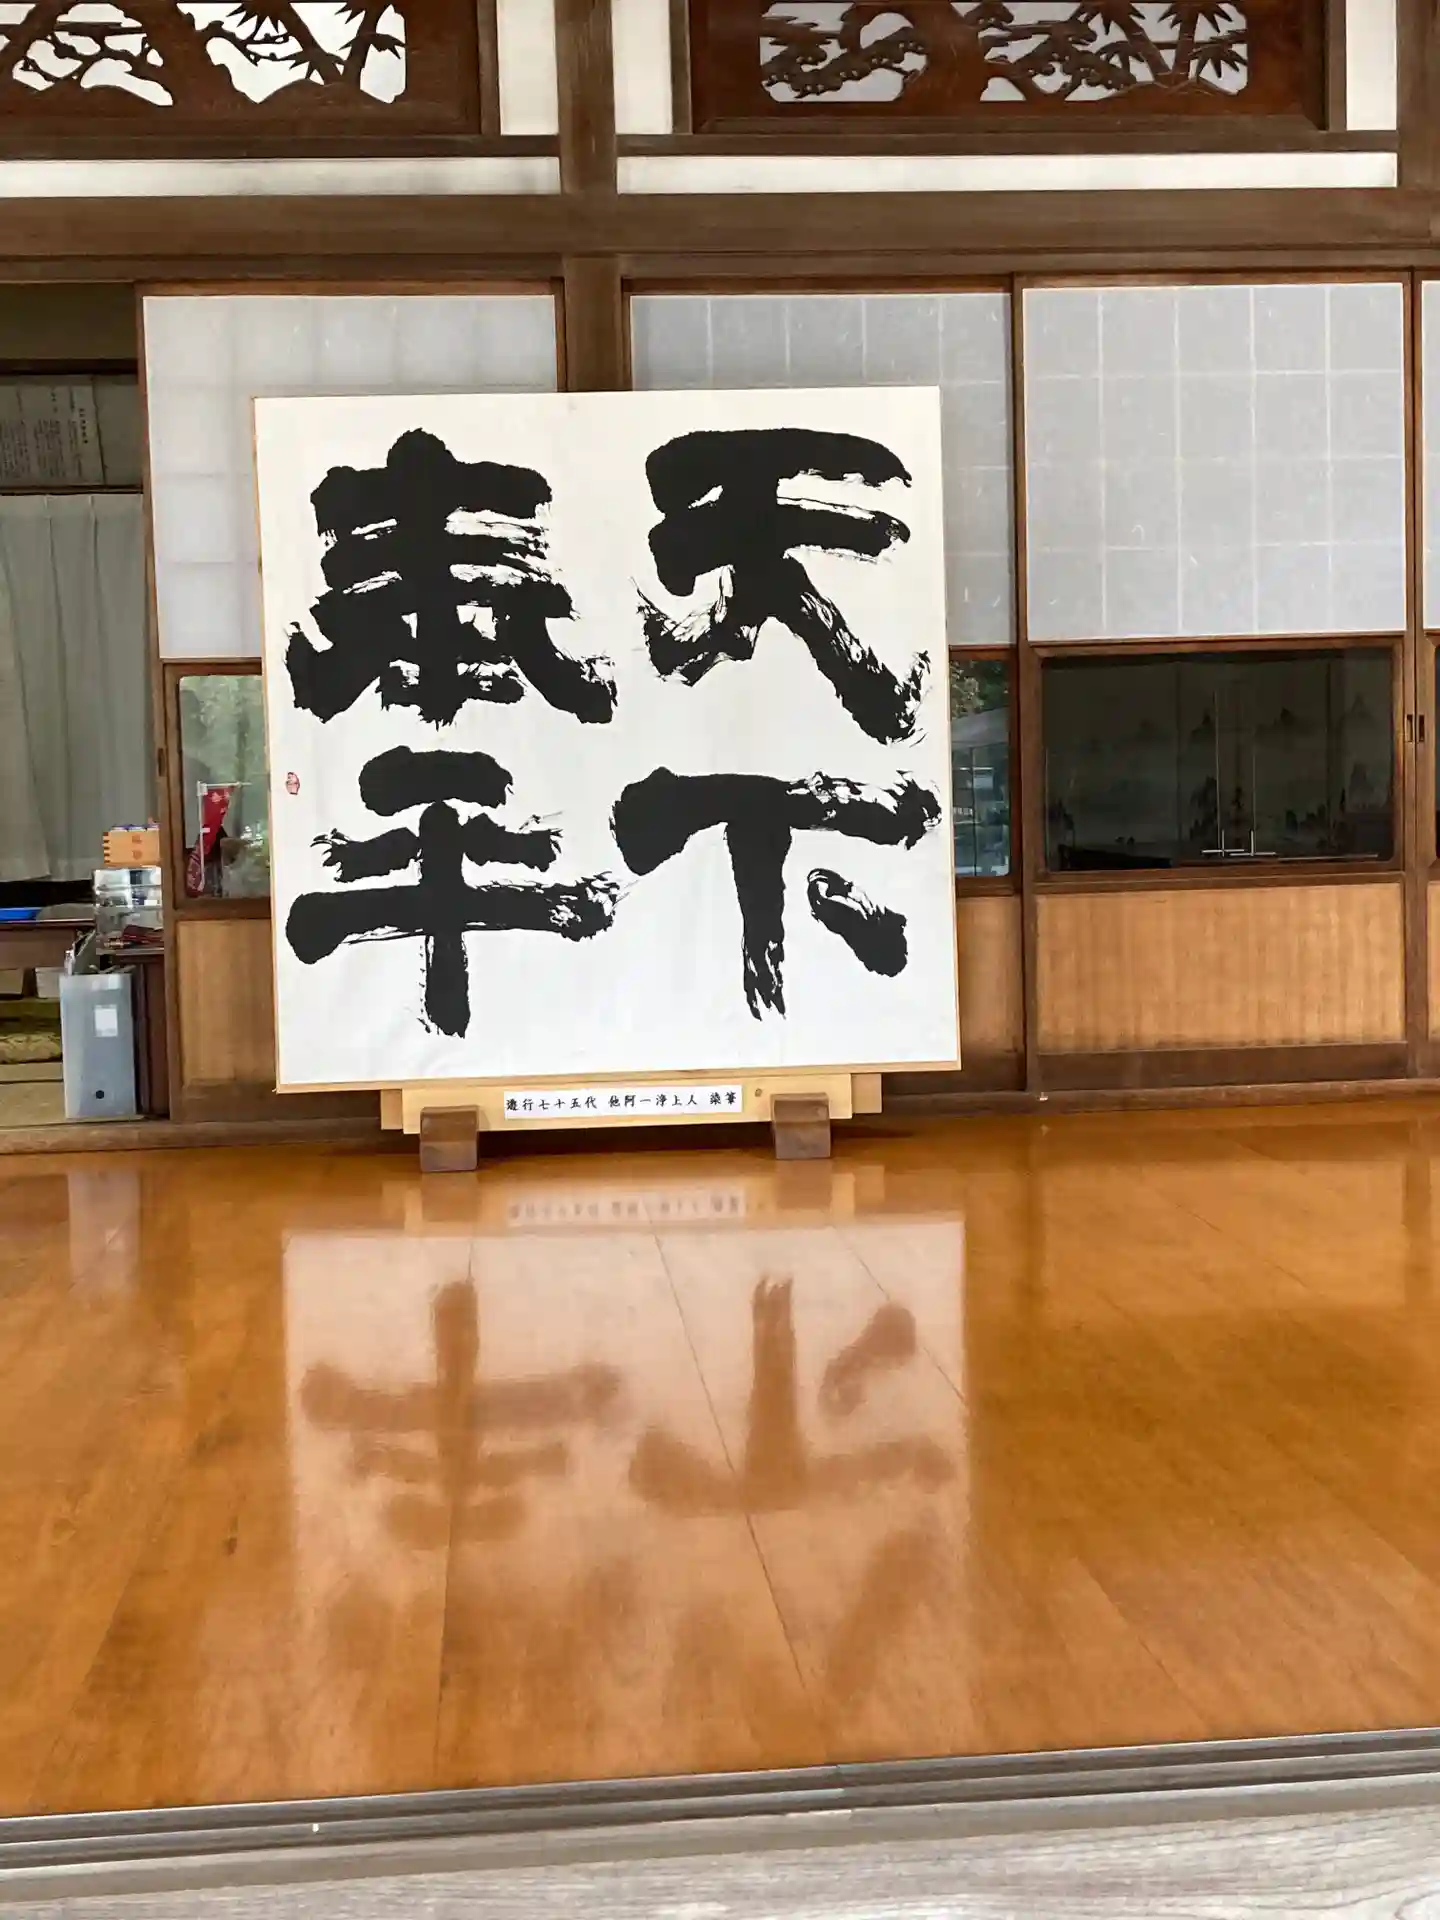 天下
泰平
遊行七十五代 他阿一浄上人 染筆